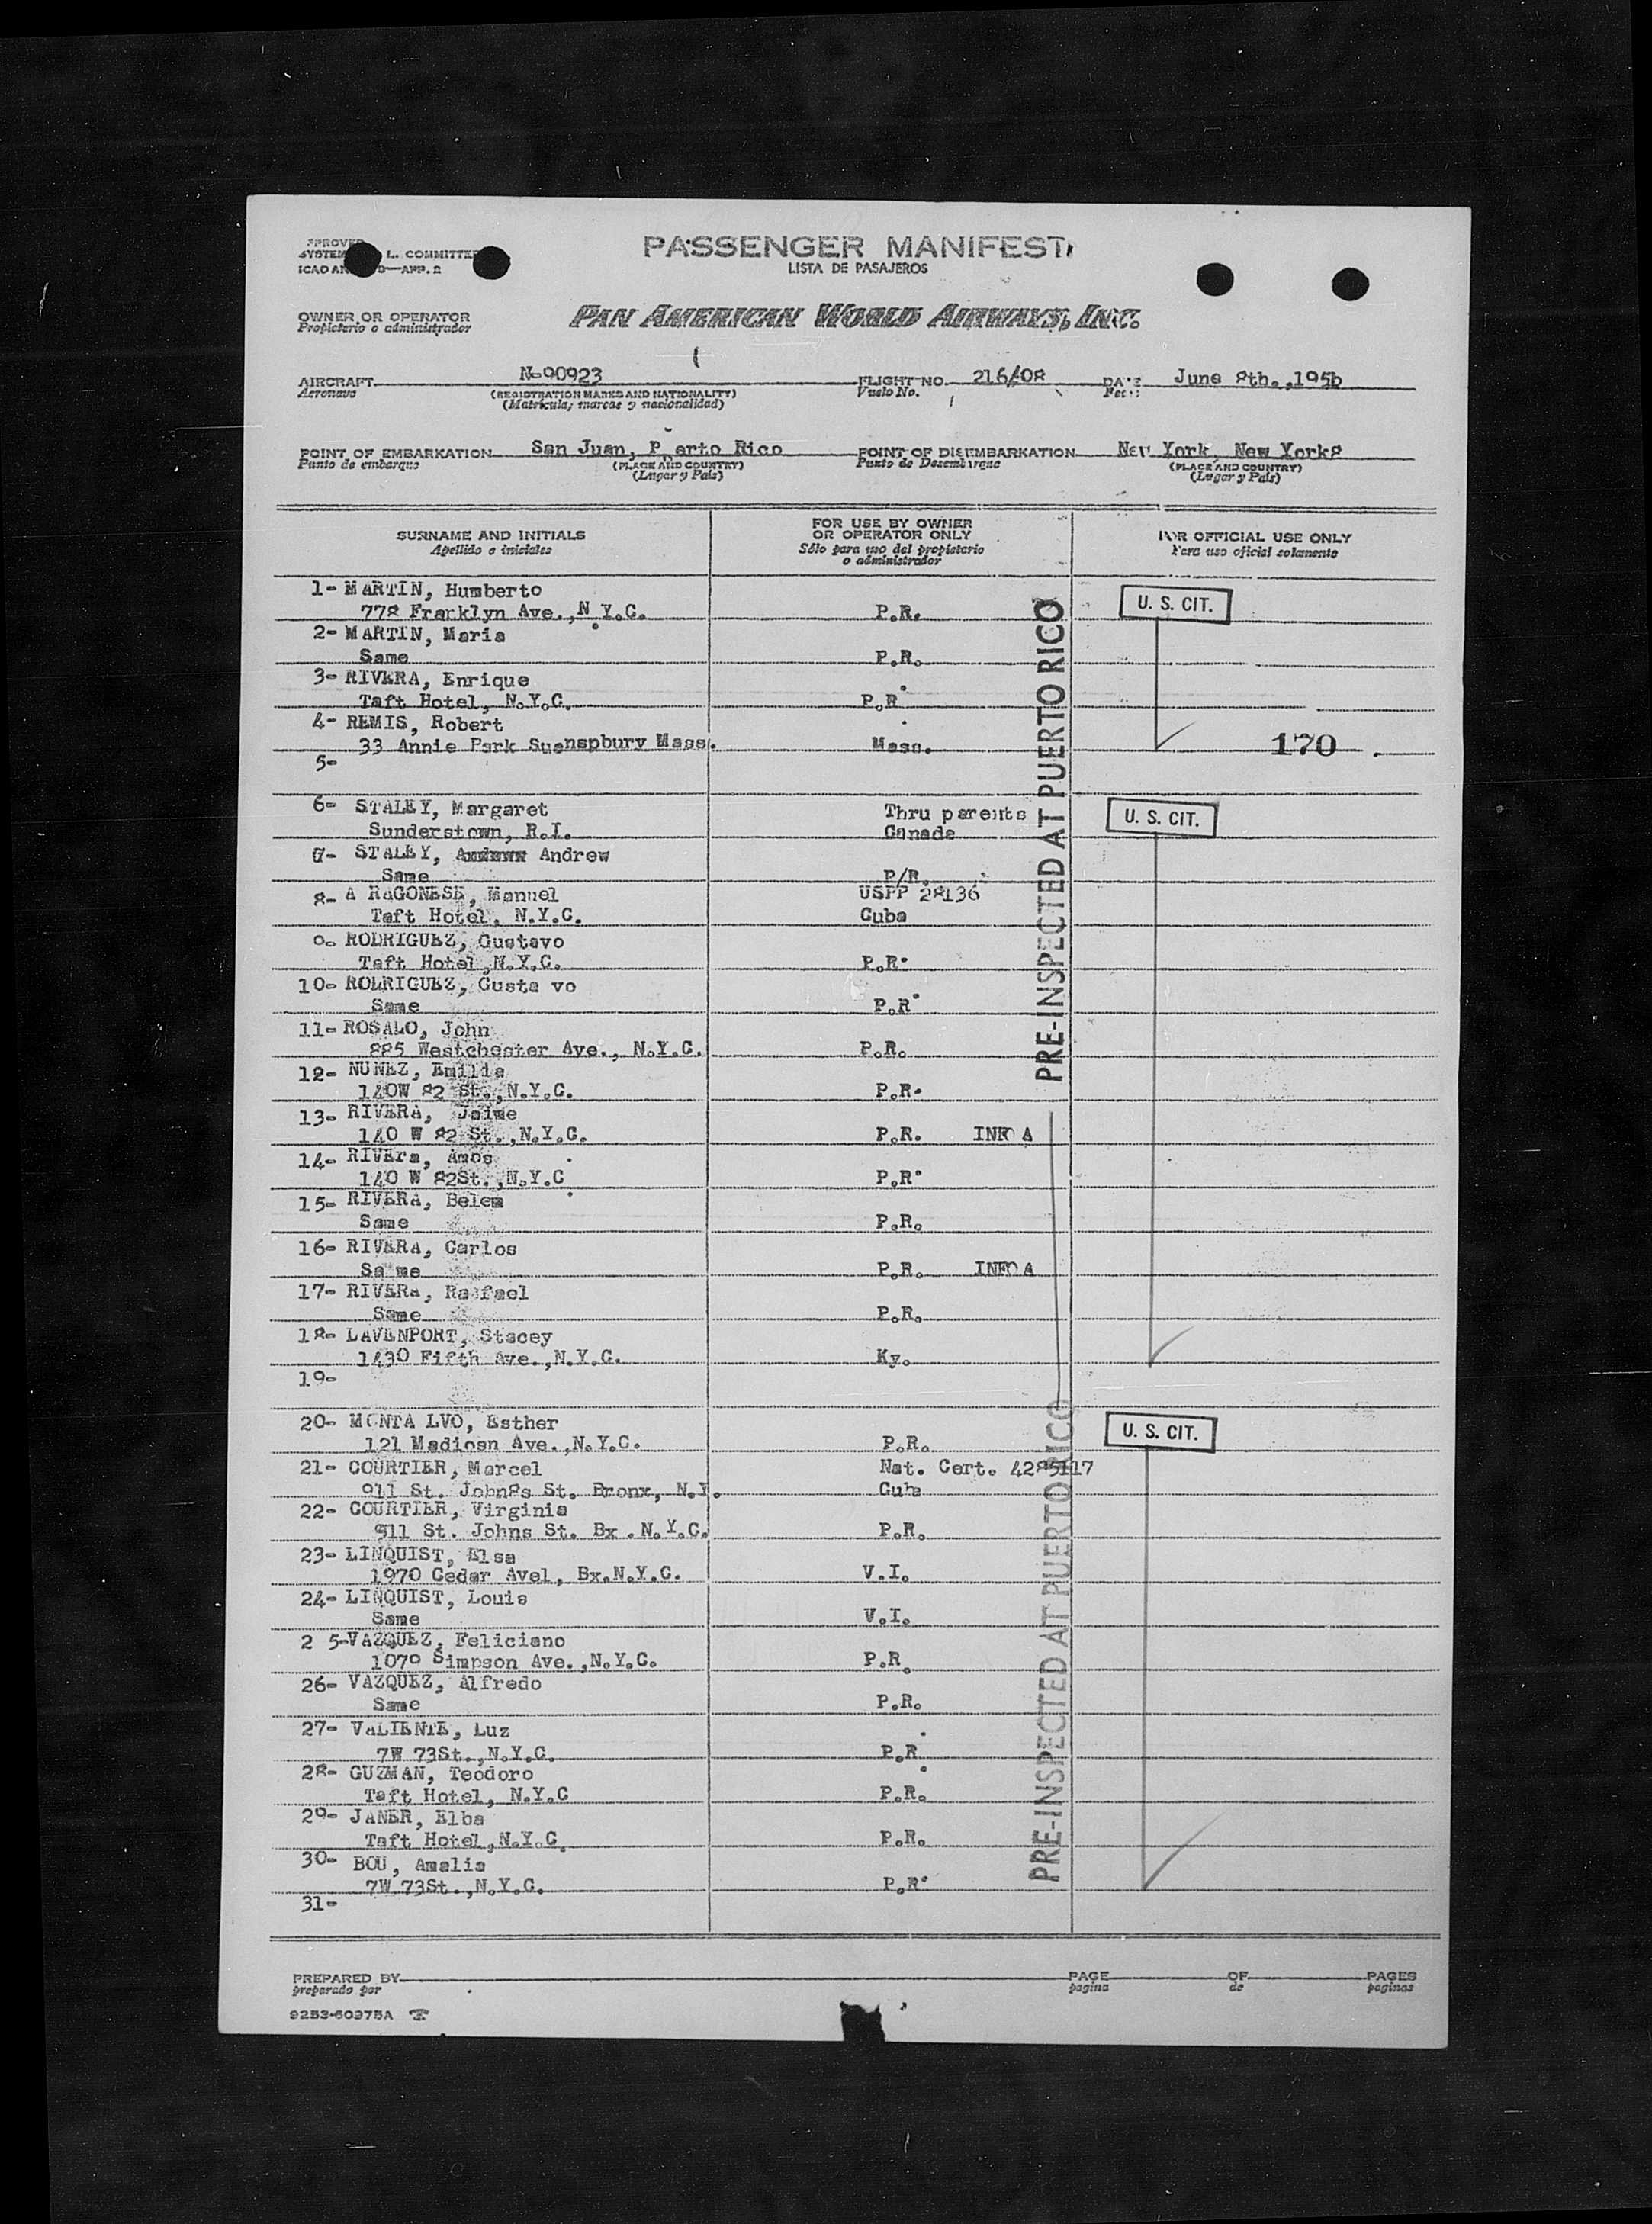 PASSENGER MANIFEST
LISTA DE PASAJEROS
L. COMMITTEE
APP. 2
OWNER OR OPERATOR
Propietario o administrador
PAN AMERICAN WORLD AIRWAYS, INC.
AIRCRAFT N-90923 FLIGHT NO. 216/08 June 8th.,195
Aeronave (REGISTRATION MARKS AND NATIONALITY) Vuelo No.
(Matrícula, marcas y nacionalidad)
POINT OF EMBARKATION San Juan, P erto Rico POINT OF DISEMBARKATION New York, New York8
Punto de embarque (PLACE AND COUNTRY) Punto de Desembarque (PLACE AND COUNTRY)
(Lugar y País) (Lugar y País)
SURNAME AND INITIALS FOR USE BY OWNER OR OPERATOR ONLY FOR OFFICIAL USE ONLY
Apellido e iniciales Sólo para uso del propietario o administrador Para uso oficial solamente
1- MARTIN, Humberto U. S. CIT.
778 Franklyn Ave.,N.Y.C. P.R.
2- MARTIN, Maria
Same P.R.
3- RIVERA, Enrique
Taft Hotel, N.Y.C. P.R.
4- REMIS, Robert
33 Annie Park Suanspbury Mass. Mass. 170
5-
6- STALEY, Margaret Thru parents U. S. CIT.
Sunderstown, R.I. Canada
7- STALEY, Andrew
Same P/R.
8- A RAGONESE, Manuel USPP 28136
Taft Hotel, N.Y.C. Cuba
9- RODRIGUEZ, Gustavo
Taft Hotel,N.Y.C. P.R.
10- RODRIGUEZ, Gusta vo
Same P.R.
11- ROSADO, John
885 Westchester Ave., N.Y.C. P.R.
12- NUNEZ, Emilia
140W 82 St.,N.Y.C. P.R.
13- RIVERA, Jaime
140 W 82 St.,N.Y.C. P.R. INFO A
14- RIVEra, Amos
140 W 82St.,N.Y.C. P.R.
15- RIVERA, Belem
Same P.R.
16- RIVERA, Carlos
Sa me P.R. INFO A
17- RIVERA, Rafael
Same P.R.
18- DAVENPORT, Stacey
1430 Fifth Ave.,N.Y.C. Ky.
19-
20- MONTA LVO, Esther U. S. CIT.
121 Madiosn Ave.,N.Y.C. P.R.
21- COURTIER, Marcel Nat. Cert. 4285117
911 St. John8s St. Bronx, N.Y. Cuba
22- COURTIER, Virginia
911 St. Johns St. Bx .N.Y.C. P.R.
23- LINQUIST, Elsa
1970 Cedar Avel, Bx.N.Y.C. V.I.
24- LINQUIST, Louis
Same V.I.
2 5-VAZQUEZ, Feliciano
1079 Simpson Ave.,N.Y.C. P.R.
26- VAZQUEZ, Alfredo
Same P.R.
27- VALIENTE, Luz
7W 73St.,N.Y.C. P.R.
28- GUZMAN, Teodoro
Taft Hotel, N.Y.C P.R.
29- JANER, Elba
Taft Hotel,N.Y.C. P.R.
30- BOU, Amalia
7W 73St.,N.Y.C. P.R.
31-
PRE-INSPECTED AT PUERTO RICO
PRE-INSPECTED AT PUERTO RICO
PREPARED BY PAGE OF PAGES
preparado por pagina de paginas
9253-60975A